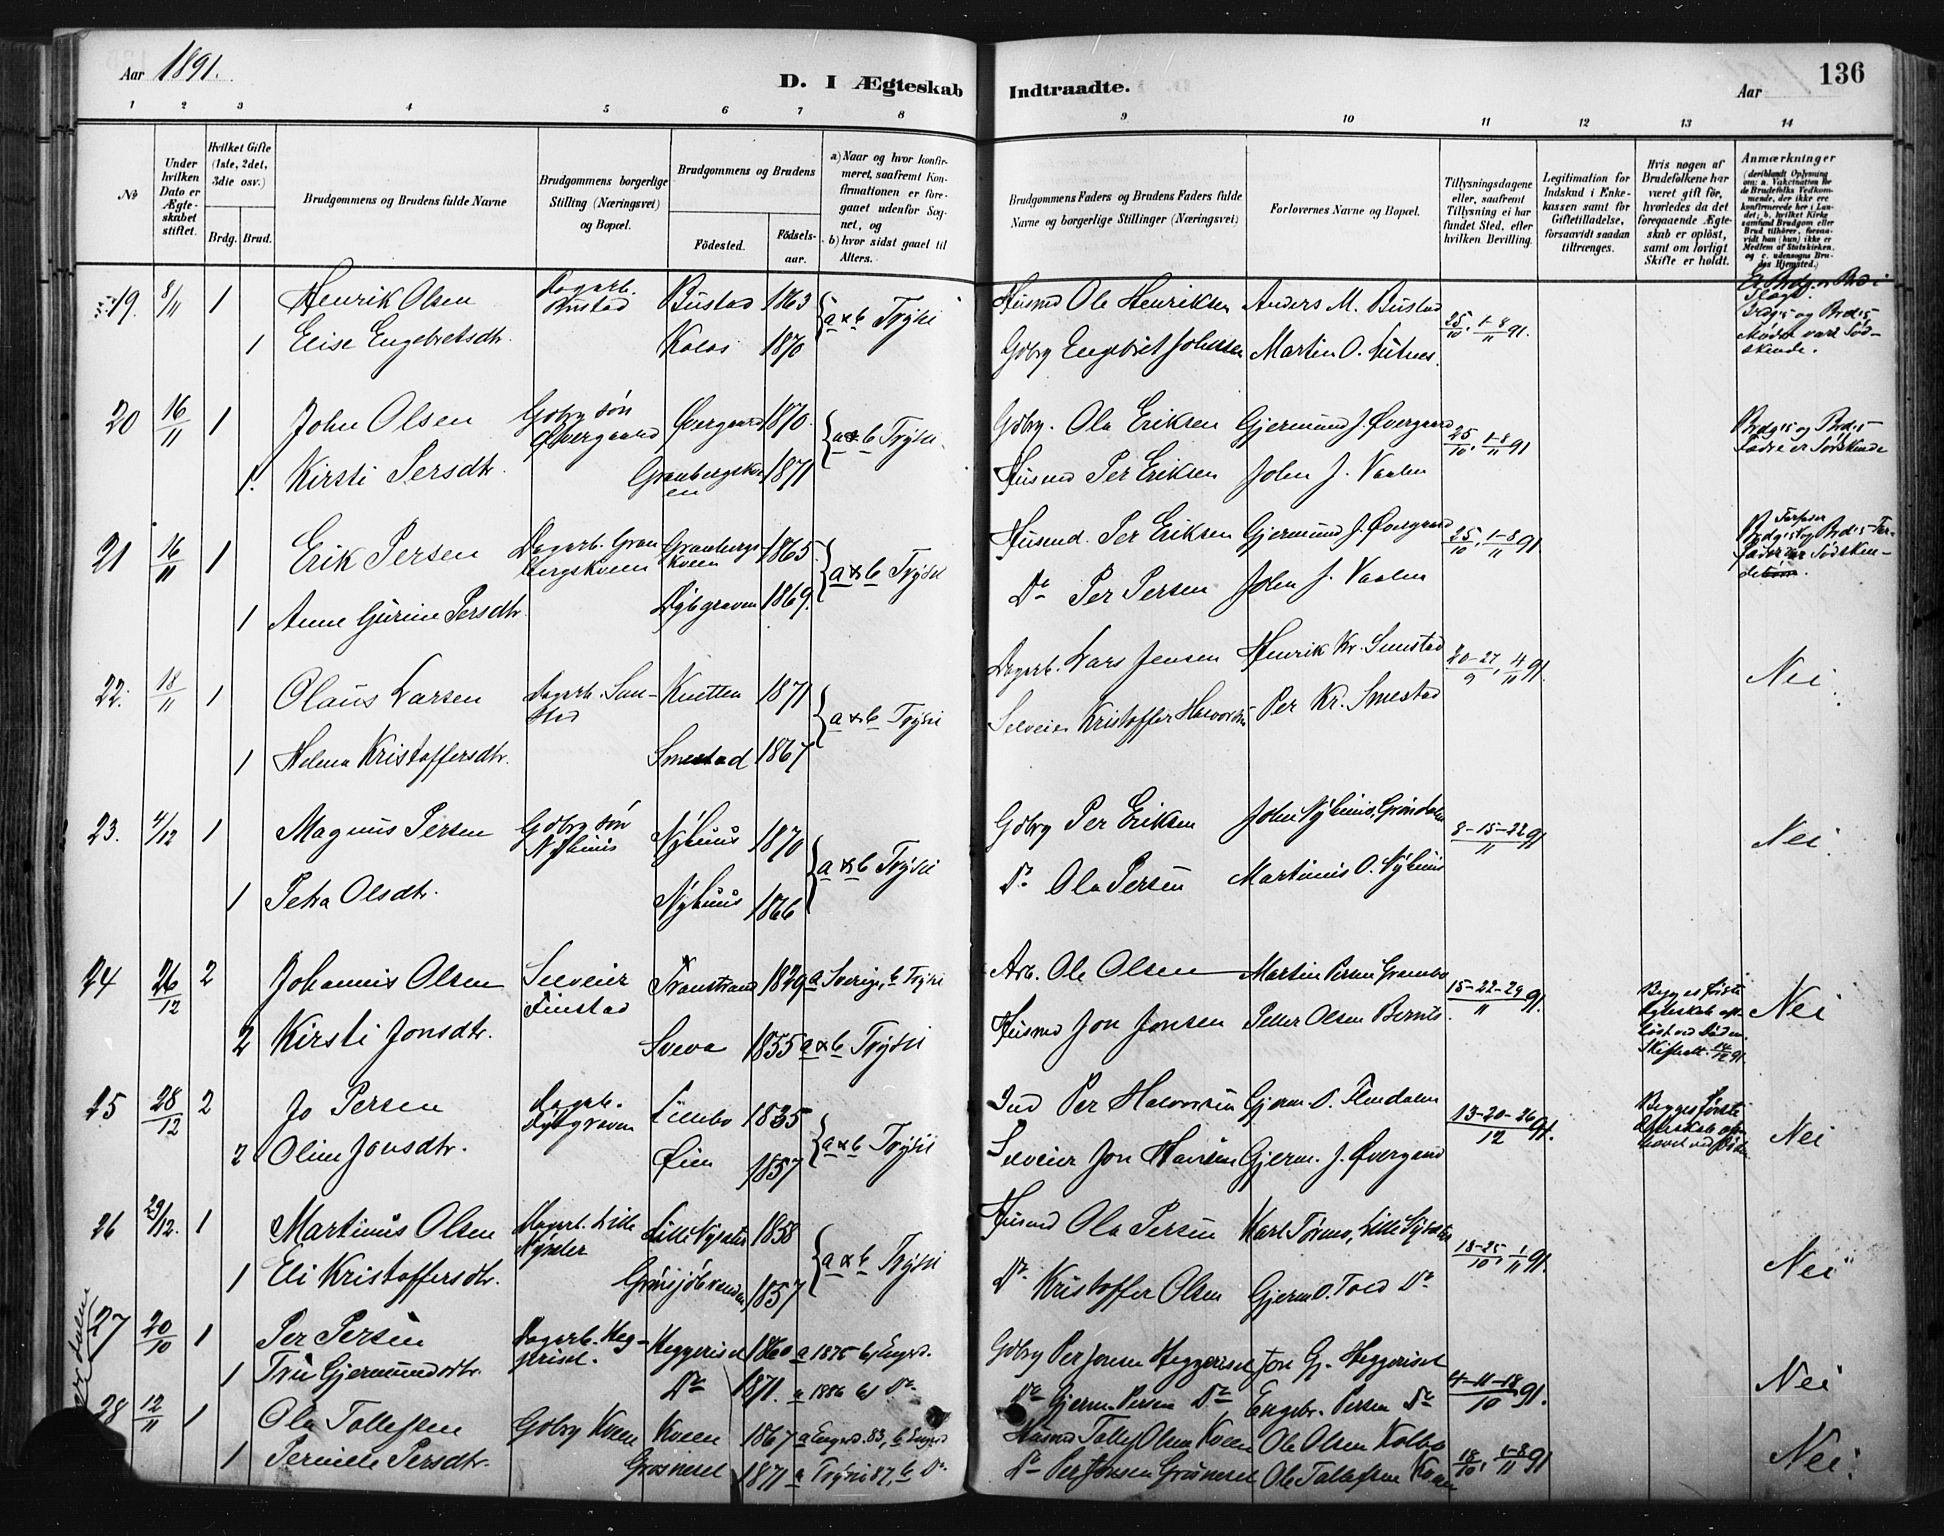 Aar 1891.
D. I Ægteskab Indtraadte.
Aar
136
1 2 3 4 5 6 7 8 9 10 11 12 13 14
No
Under hvilken Dato er Ægteskabet stiftet.
Hvilket Gifte (1ste, 2det, 3die osv.)
Brdg. Brud.
Brudgommens og Brudens fulde Navne
Brudgommens borgerlige Stilling (Næringsvei) og Bopæl.
Brudgommens og Brudens
Födested.
Födselsaar.
a) Naar og hvor konfirmeret, saafremt Konfirmationen er foregaaet udenfor Sognet, og
b) hvor sidst gaaet til Alters.
Brudgommens Faders og Brudens Faders fulde Navne og borgerlige Stillinger (Næringsvei)
Forlovernes Navne og Bopæl.
Tillysningsdagene eller, saafremt Tillysning ei har fundet Sted, efter hvilken Bevilling.
Legitimation for Indskud i Enkekassen samt for Giftetilladelse, forsaavidt saadan tiltrænges.
Hvis nogen af Brudefolkene har været gift för, hvorledes da det foregaaende Ægteskab er oplöst, samt om lovligt Skifte er holdt.
Anmærkninger
19. 8/11 1 Henrik Olsen Dagarb. Bustad Bustad 1863 a & b Trysil Husmd Ole Henriksen Anders M. Bustad 25/10, 1-8/11 91.
1 Elise Engebretsdtr. Kolos 1870 Gdbrg Engebret Johnsen Martin O. Lutnes
Brdg's og Brd's Mødre vare Sødskende.
20 16/11 1 John Olsen Gdbrg søn Øvergaard Øvergaard 1870 a & b Trysil Gdbrg. Ola Eriksen Gjermund J. Øvergaard 25/10, 1-8/11 91
1. Kirsti Persdtr. Granbergskveen 1871 Husmd Per Eriksen John J. Vaalen
Brdg's og Brd's Fædre er Sødskende
21 16/11 1 Erik Persen Dagarb. Granbergskveen Granbergskveen 1865 a & b Trysil Husmd. Per Eriksen Gjermund J. Øvergaard 25/10, 1-8/11 91
1 Anne Gurine Persdtr. Dybgraven 1869. Do Per Persen John J. Vaalen
22. 18/11 1 Olaus Larsen Dagarb. Knetten 1871 a & b Trysil Dagarb. Lars Jensen Henrik Kr. Smestad 20-27/9, 4/11 91. Nei.
1 Helena Kristoffersdtr. Smestad 1867 Selveier Kristoffer Halvorsen Per Kr. Smestad
23. 4/12 1 Magnus Persen Gdbrg søn Nyhuus Nyhuus 1870 a & b Trysil Gdbrg Per Eriksen John Nyhuus, Grøndalen 8-15-22/11 91 Nei.
1 Petra Olsdtr. Nyhuus 1866 Do Ola Persen Martinus O. Nyhuus
24 26/12 2 Johannis Olsen Selveier Finstad Transtrand 1829 a Sverige, b Trysil Arb. Ole Olsen Martin Persen Grambo 15-22-29/11 91. Nei
2 Kirsti Jonsdtr. Sveva 1855 a & b Trysil Husmd Jon Jonsen Petter Olsen Bernts.
Begges første Egteskab opløst ved Døden. Skiftatt. 14/12 91.
25 28/12 2 Jo Persen Dagarb. Dybgraven Limbo 1835 a & b Trysil Ind Per Halvorsen Gjerm. O. Flendalen 13-20-26/12 91. Nei
2 Oline Jonsdtr. Øien 1857 Selveier Jon Gjerm. J. Øvergaard
Begges første Egteskab ophævet ved Døden
26 29/12. 1 Martinus Olsen Dagarb. Lille Nysæter Lille Nysæter 1858 a & b Trysil Husmd Ola Persen Karl Lille Nysæter 18-25/10, 1/11 91. Nei
1 Eli Kristoffersdtr. 1857 Do Kristoffer Olsen Gjerm. O. Do
27 20/10 1 Per Persen Dagarb. Heggeriset. Heggeriset 1860 a 1875 b Engerd. Gdbrg Per Jonsen Heggeriset Jon Gj. Heggeriset 4-11-18/10 91. Nei
1 Tru Gjermundsdtr. Do 1871. a 1886 b Do Do Gjerm. Persen Do Engebr. Persen Do
28 12/11 1 Ola Tollefsen Gdbrg Kveen Kveen 1867 a Engerd. 83, b Engerd Husmd Tollef Olsen Kveen Ole Olsen Kolbo 18/10, 1-8/11 91 Nei.
1 Pernele Persdtr. Grosneset 1871 a Trysil 87, b Do Do Per Jonsen Grosneset Ole Tollefsen Kveen